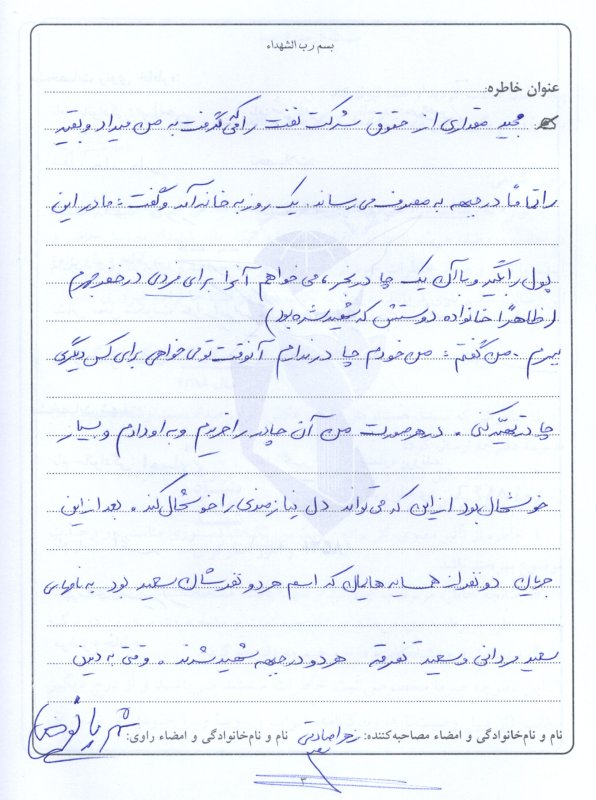 بسم رب الشهداء
عنوان خاطره:
مجید مقداری از حقوق شرکت نفت را که می‌گرفت به من میداد و بقیه
را تماماً در جبهه به مصرف می رساند. یک روز به خانه آمد و گفت: مادر این
پول را بگیر و با آن یک چادر بخر، می خواهم آنرا برای فردی در جهرم
(ظاهراً خانواده دوستش که شهید شده بود)
ببرم. من گفتم: من خودم چادر ندارم آنوقت تو می خواهی برای کس دیگری
چادر تهیّه کنی. در هر صورت من آن چادر را خریدم و به او دادم و بسیار
خوشحال بود از این که می تواند دل نیازمندی را خوشحال کند. بعد از این
جریان دو نفر از همسایه هایمان که اسم هر دو نفرشان سعید بود به نامهای
سعید مردانی و سعید هر دو در جبهه شهید شدند. وقتی به دیدن
نام و نام‌خانوادگی و امضاء مصاحبه‌کننده: زهرا صادقی نام و نام‌خانوادگی و امضاء راوی:
۳